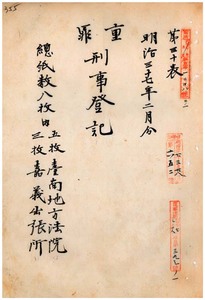 355
第三十表
明治三十七年二月分
刑事登記
重罪
總紙数八枚内
五枚臺南地方法院
三枚嘉義出張所